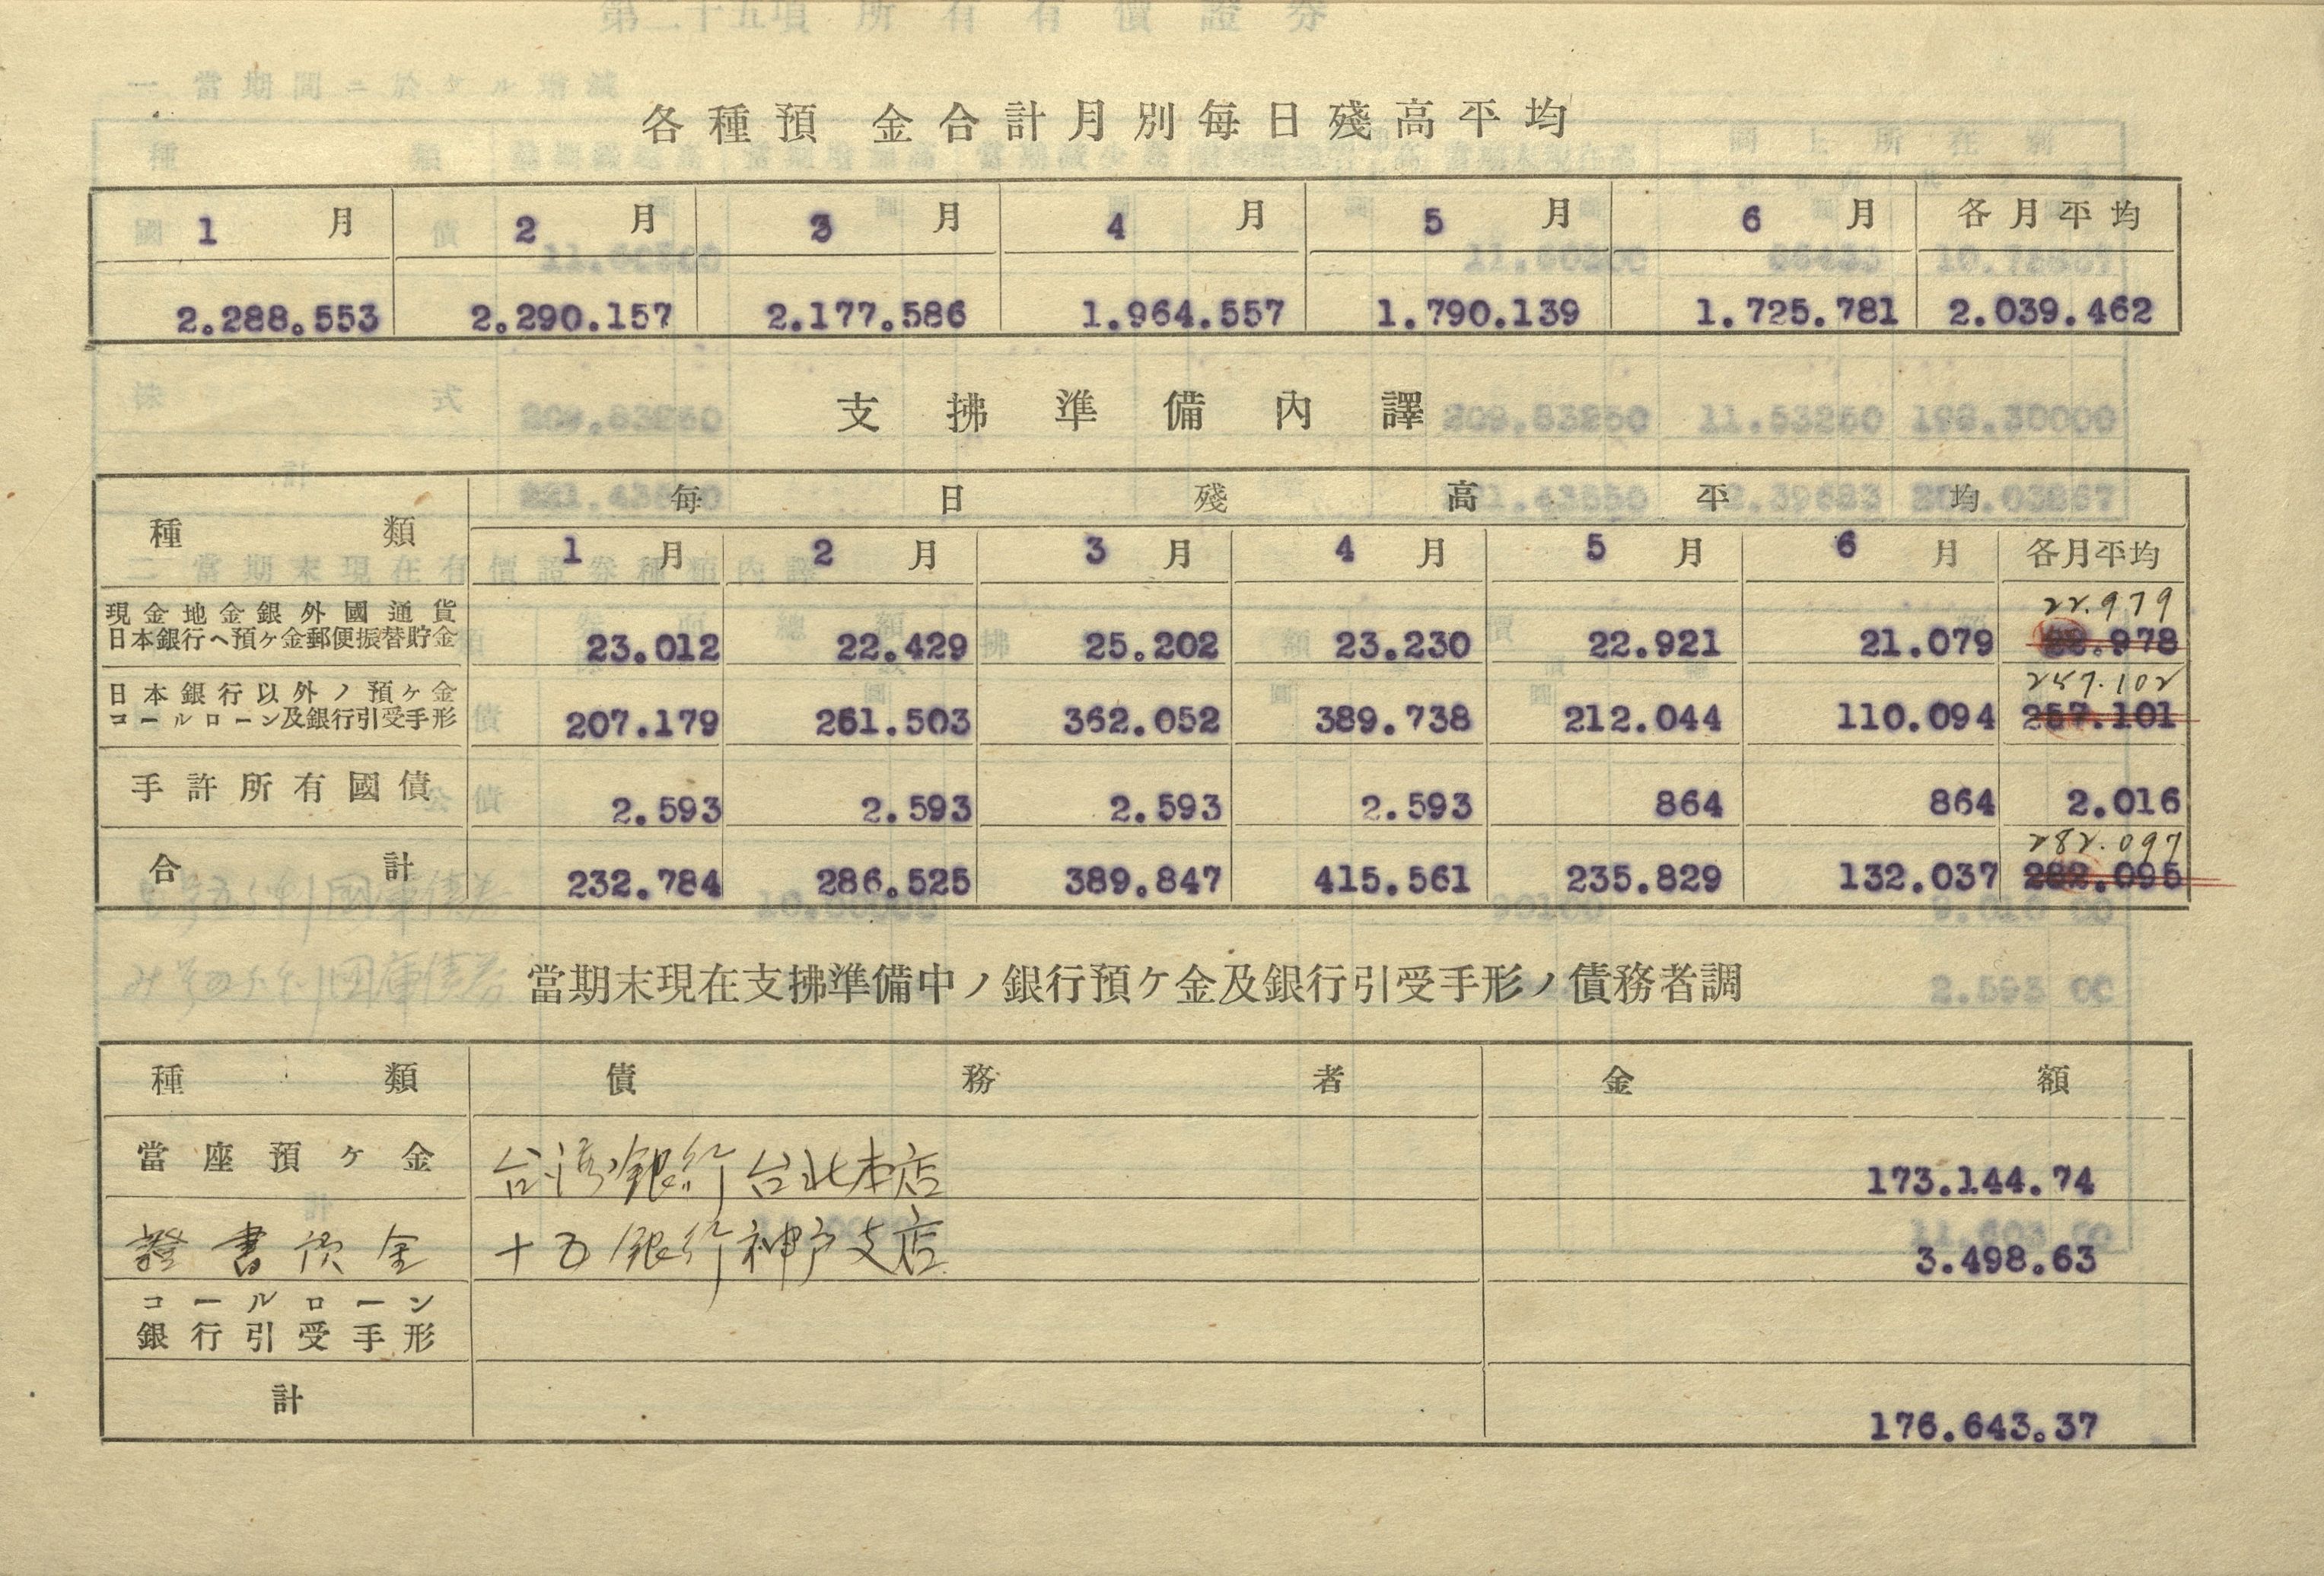 各種預金合計月別每日殘高平均
1月 2月 3月 4月 5月 6月 各月平均
2.288.553 2.290.157 2.177.586 1.964.557 1.790.139 1.725.781 2.039.462
支拂準備內譯
種類 每日殘高平均
1月 2月 3月 4月 5月 6月 各月平均
22.979
現金地金銀外國通貨
日本銀行ヘ預ヶ金郵便振替貯金 23.012 22.429 25.202 23.230 22.921 21.079 22.978
257.102
日本銀行以外ノ預ヶ金
コールローン及銀行引受手形 207.179 261.503 362.052 389.738 212.044 110.094 257.101
手許所有國債 2.593 2.593 2.593 2.593 864 864 2.016
282.097
合計 232.784 286.525 389.847 415.561 235.829 132.037 282.095
當期末現在支拂準備中ノ銀行預ケ金及銀行引受手形ノ債務者調
種類 債務者 金額
當座預ヶ金 台湾銀行台北本店 173.144.74
證書預金 十五銀行神戸支店 3.498.63
コールローン
銀行引受手形
計 176.643.37